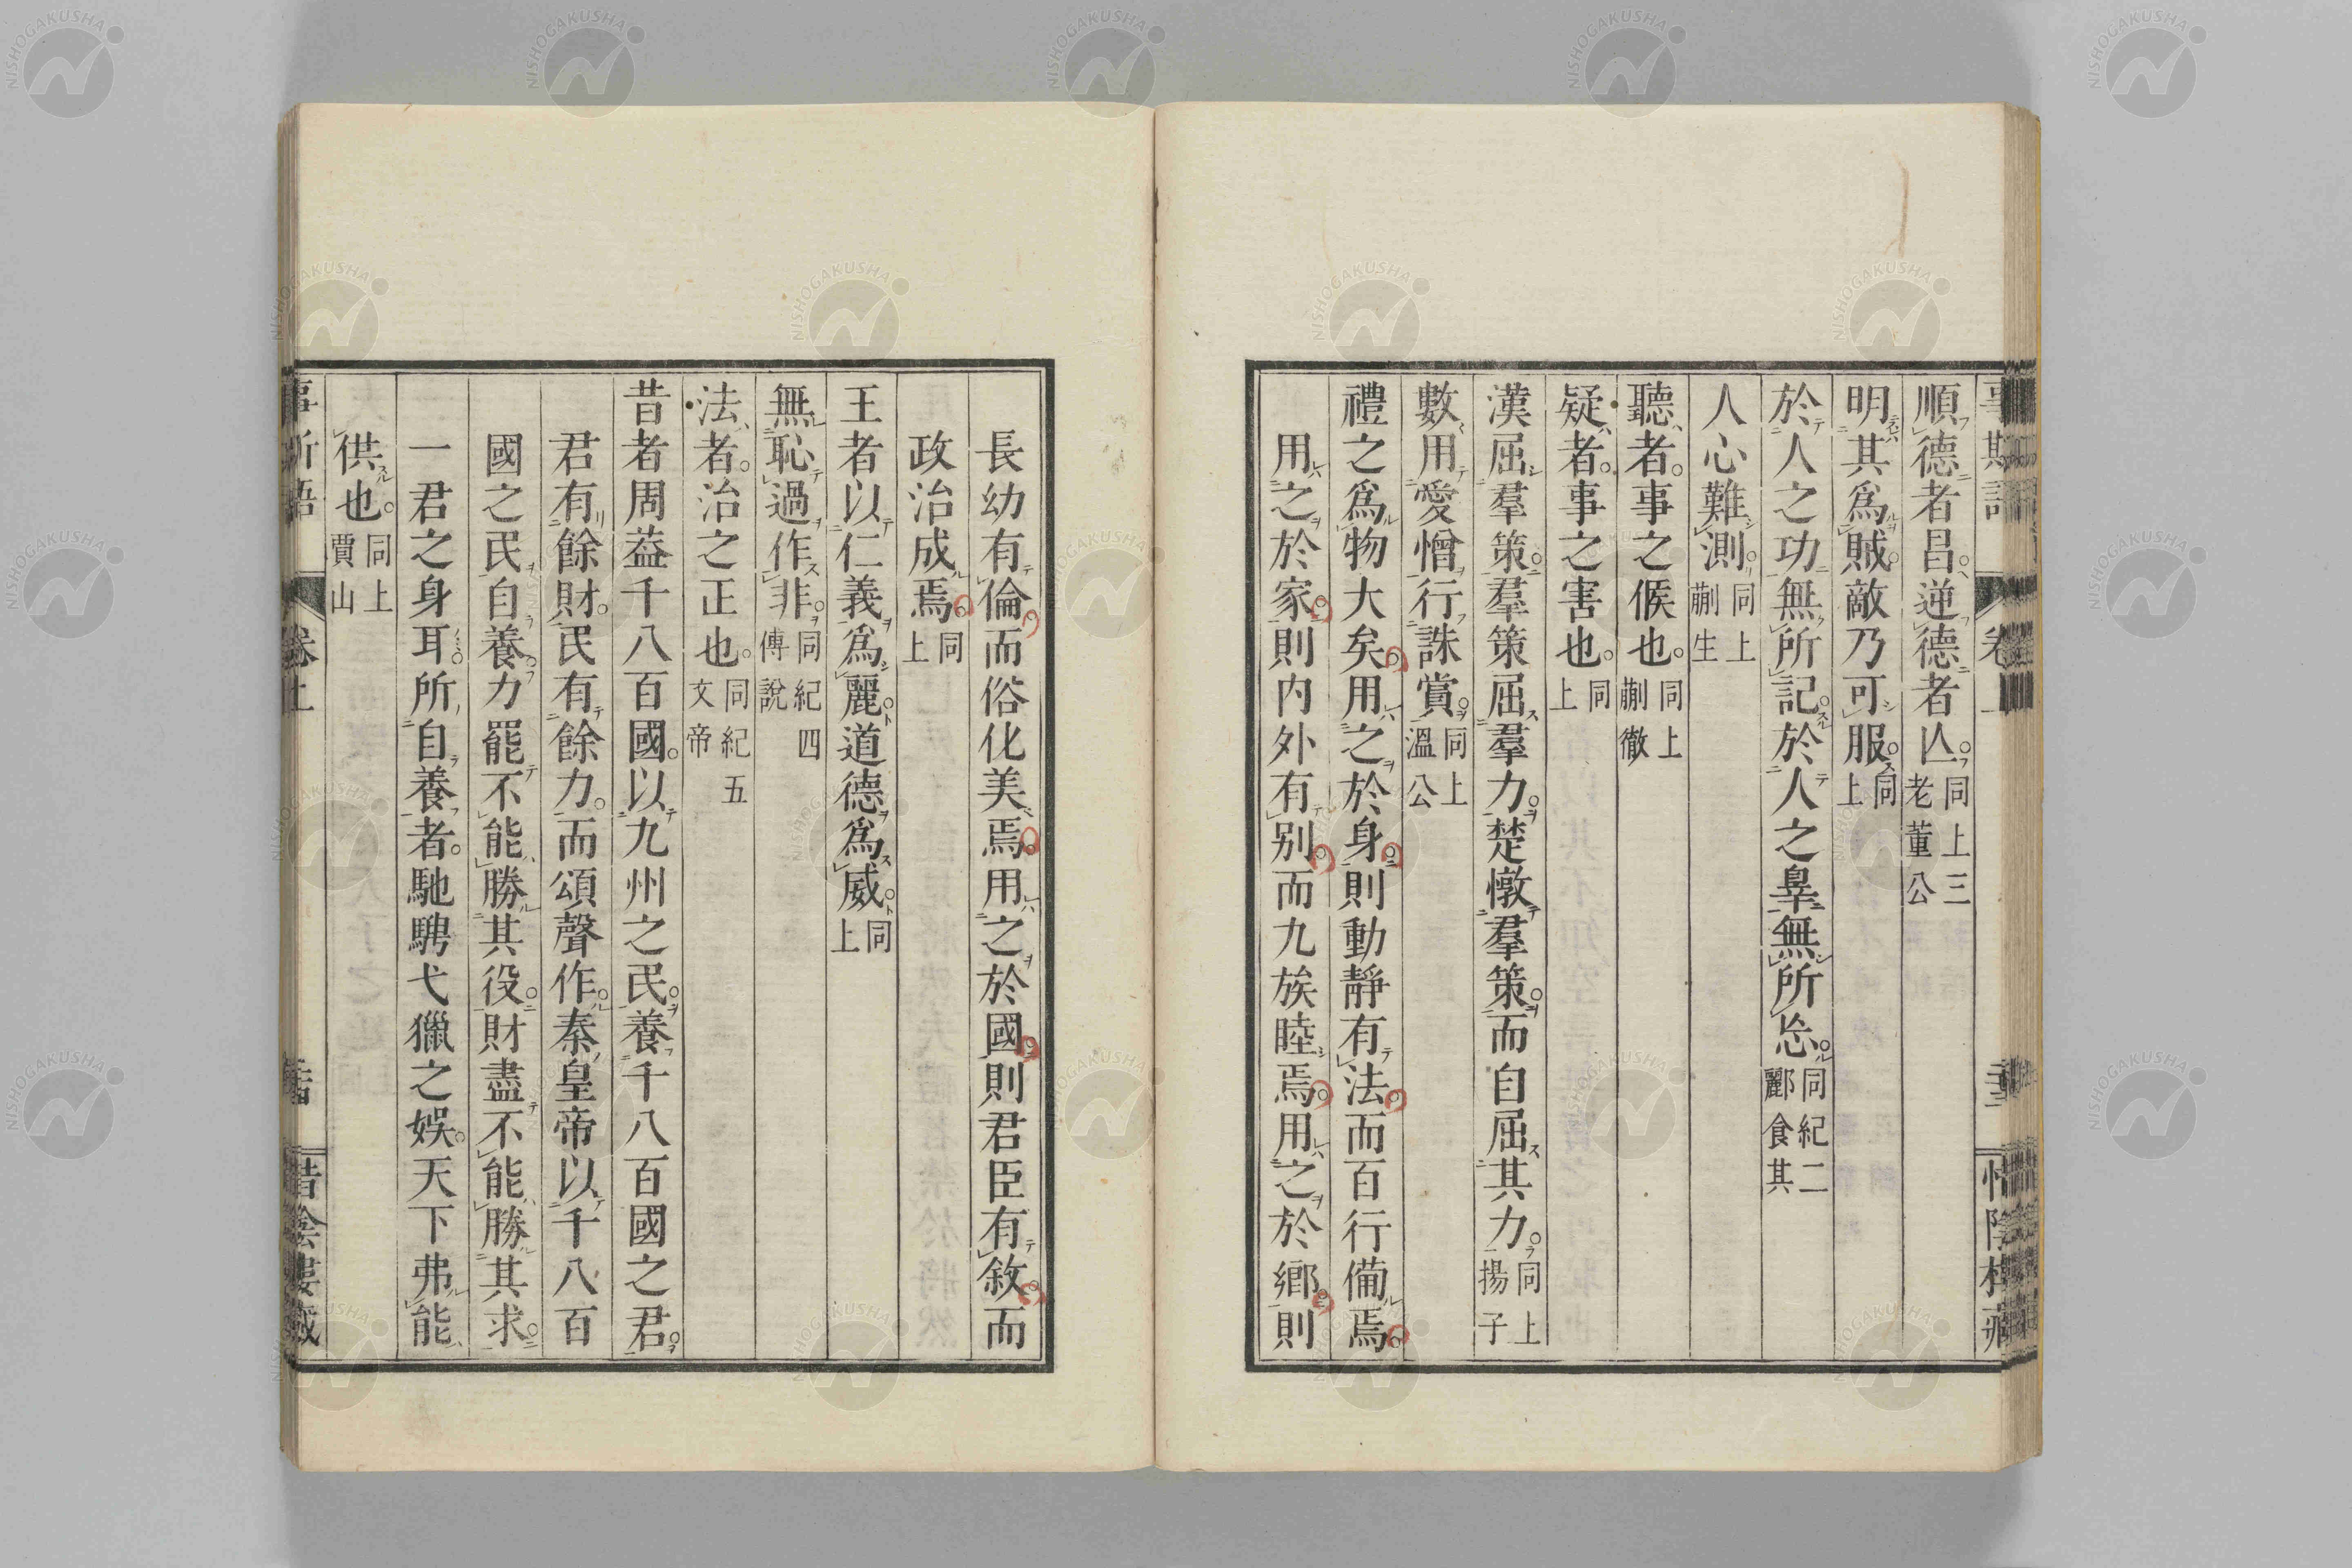 順德者昌逆德者亾同上三老董公
明其爲賊敵乃可服同上
於人之功無所記於人之辠無所忘同紀二酈食其
人心難測同上蒯生
聽者事之候也同上蒯徹
疑者事之害也同上
漢屈羣策羣策屈羣力楚憞羣策而自屈其力同上揚子
數用愛憎行誅賞同上溫公
禮之爲物大矣用之於身則動靜有法而百行備焉
用之於家則内外有别而九族睦焉用之於鄉則
長幼有倫而俗化美焉用之於國則君臣有敘而
政治成焉同上
王者以仁義爲麗道德爲威同上
無恥過作非同紀四傅說
法者治之正也同紀五文帝
昔者周葢千八百國以九州之民養千八百國之君
君有餘財民有餘力而頌聲作秦皇帝以千八百
國之民自養力罷不能勝其役財盡不能勝其求
一君之身耳所自養者馳騁弋獵之娛天下弗能
供也同上賈山
卷上
惜陰樓藏
NISHOGAKUSHA